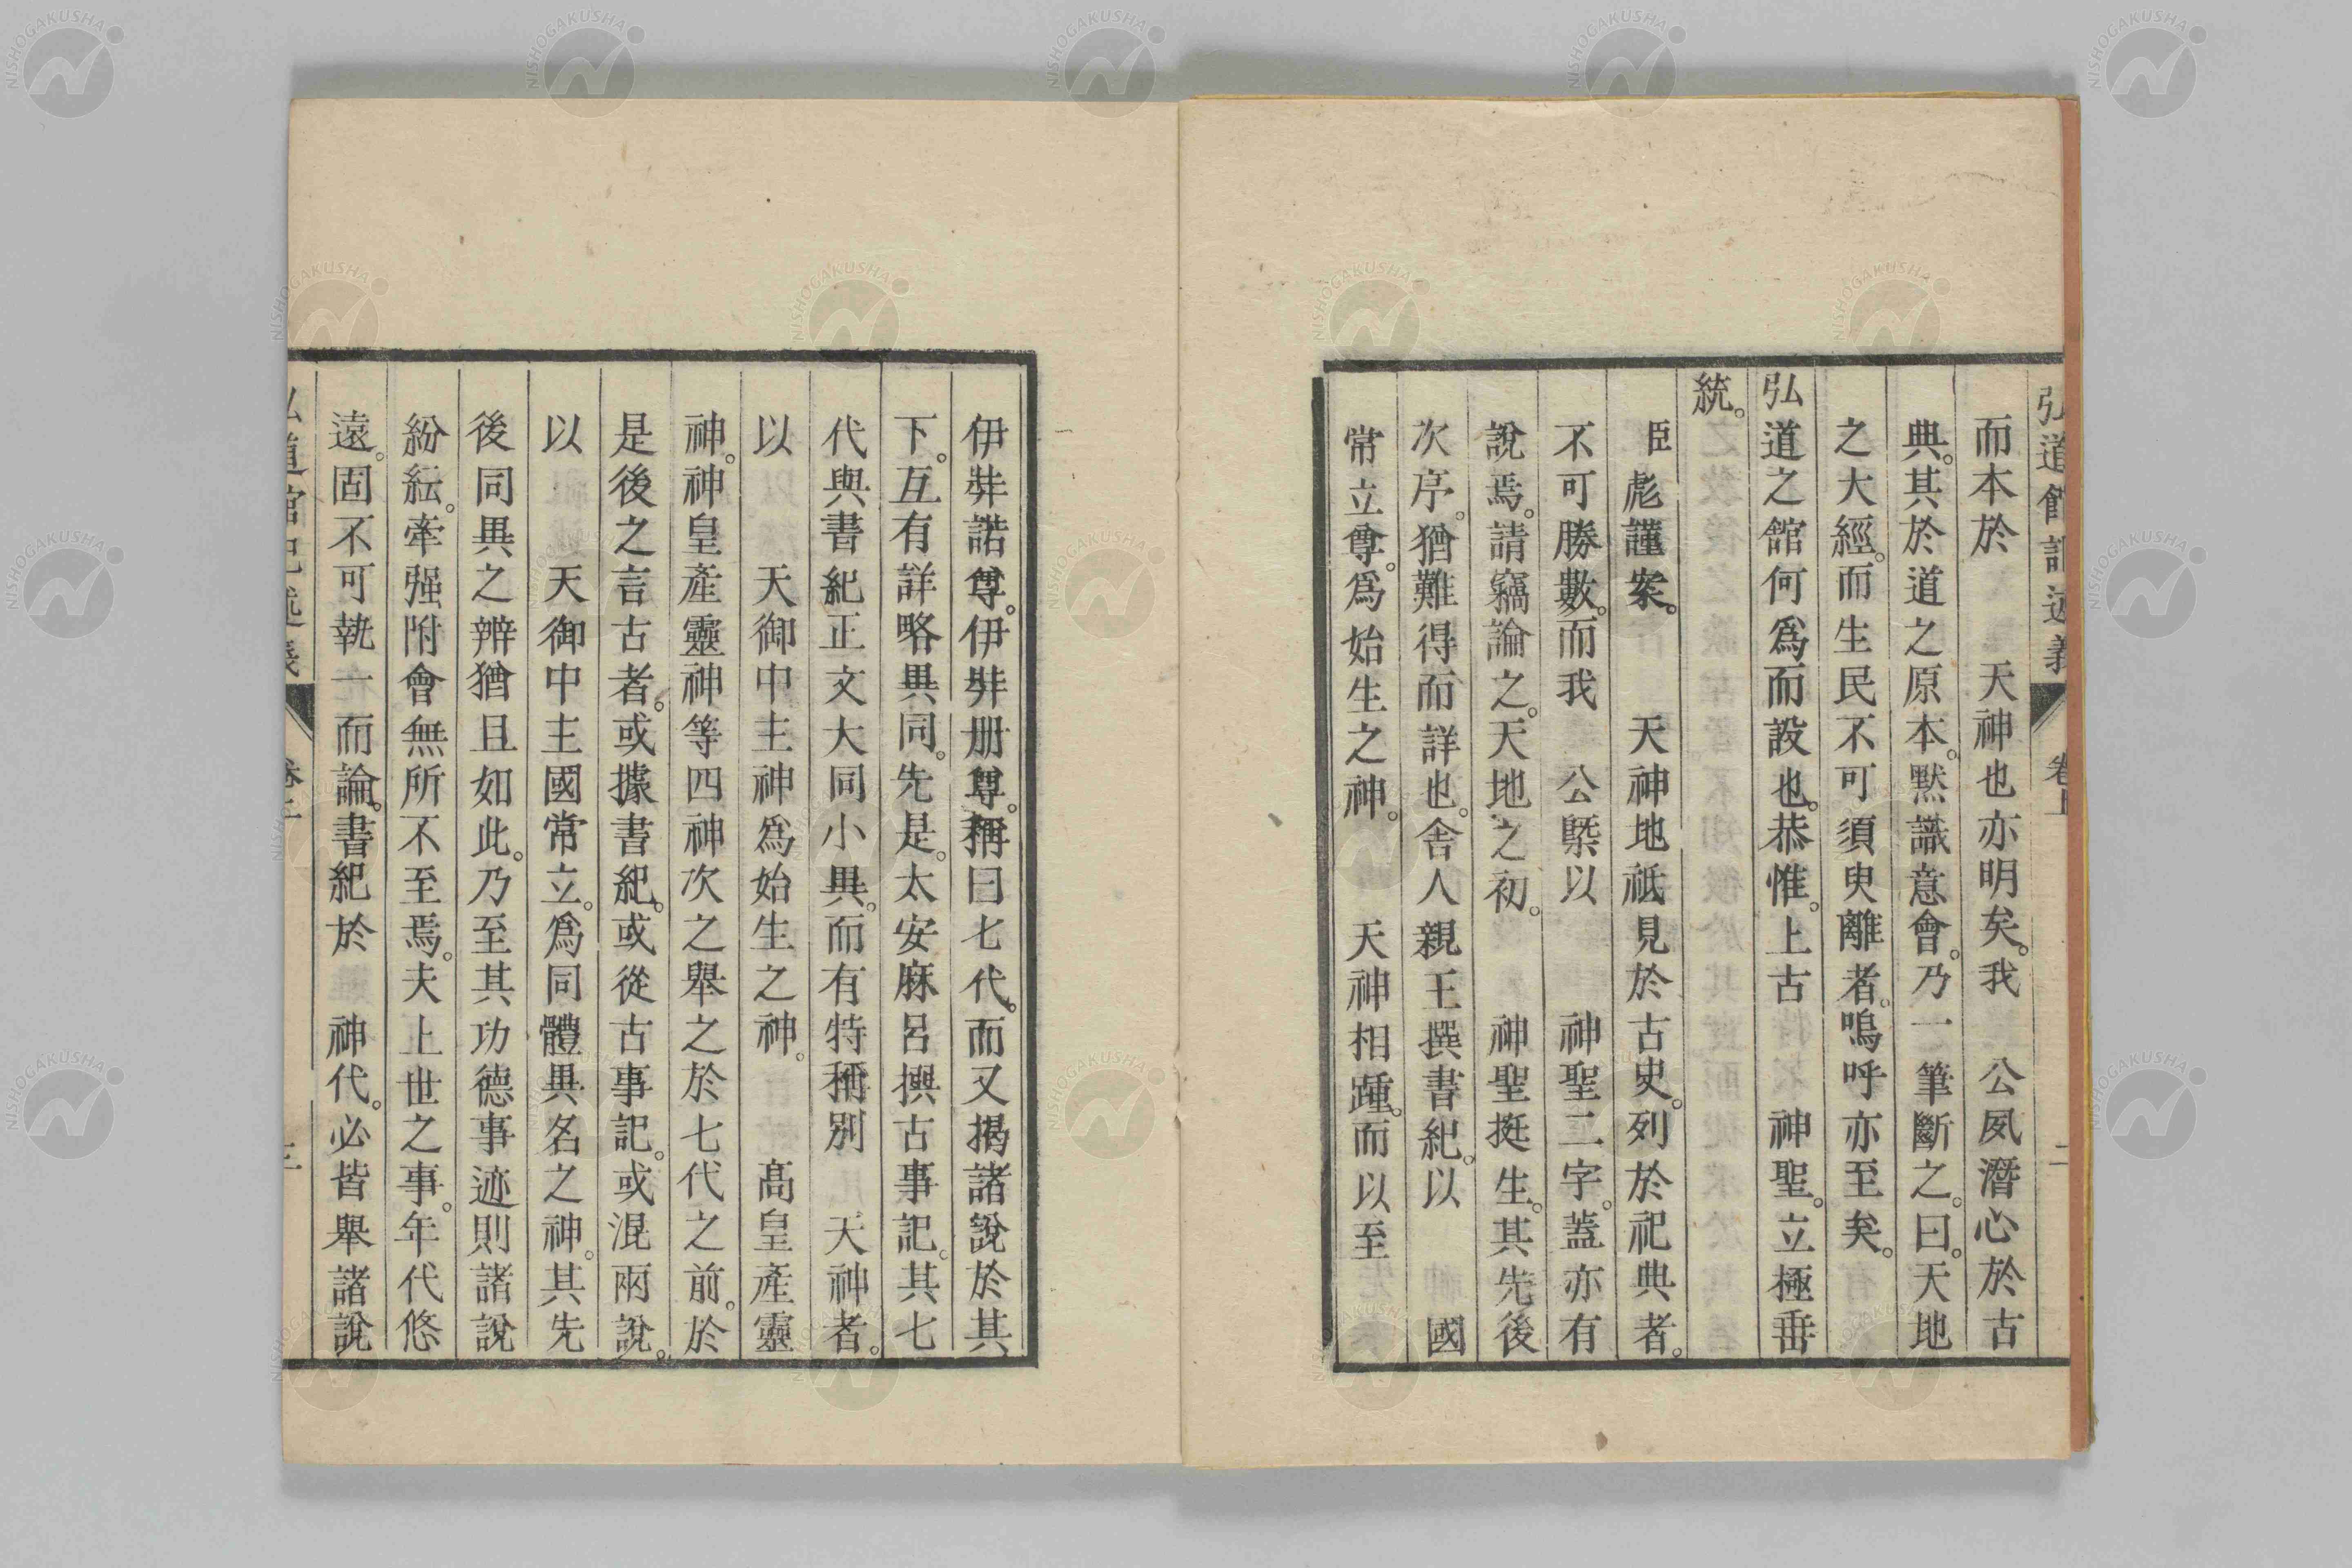 弘道館記述義 卷上 二
而本於　天神也亦明矣。我　公夙潛心於古
典。其於道之原本。默識意會。乃一筆斷之。曰。天地
之大經。而生民不可須臾離者。嗚呼亦至矣。
弘道之館何爲而設也。恭惟。上古　神聖。立極垂
統。
臣彪謹案。　天神地祇見於古史。列於祀典者。
不可勝數。而我　公槩以　神聖二字。蓋亦有
說焉。請竊論之。天地之初。　神聖挺生。其先後
次序。猶難得而詳也。舍人親王撰書紀。以　國
常立尊。爲始生之神。　天神相踵。而以至
伊弉諾尊。伊弉册尊。稱曰七代。而又揭諸說於其
下。互有詳略異同。先是。太安麻呂撰古事記。其七
代與書紀正文大同小異。而有特稱別　天神者。
以　天御中主神爲始生之神。　高皇產靈
神。神皇產靈神等四神次之舉之於七代之前。於
是後之言古者。或據書紀。或從古事記。或混兩說。
以　天御中主國常立。爲同體異名之神。其先
後同異之辨猶且如此。乃至其功德事迹則諸說
紛紜。牽强附會無所不至焉。夫上世之事。年代悠
遠。固不可執一而論。書紀於　神代。必皆舉諸說
弘道館記述義